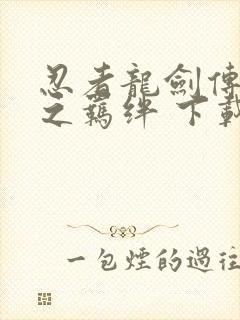 忍者龍劍傳
之羈絆 下載
一包煙的過往